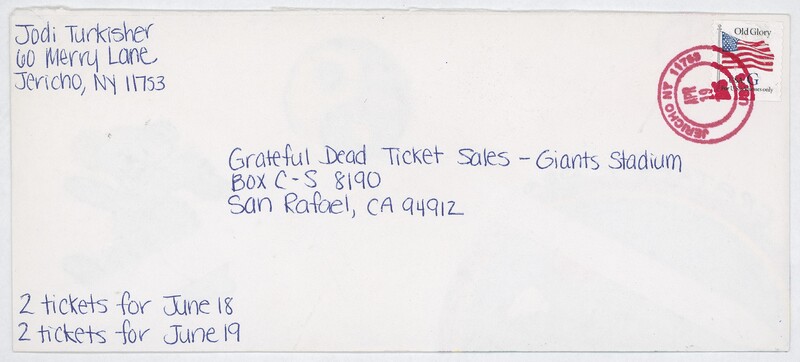 Jodi Turkisher
60 Merry Lane
Jericho, NY 11753
Old Glory
G
JERICHO NY 11753
APR
19
Grateful Dead Ticket Sales - Giants Stadium
Box C-S 8190
San Rafael, CA 94912
2 tickets for June 18
2 tickets for June 19